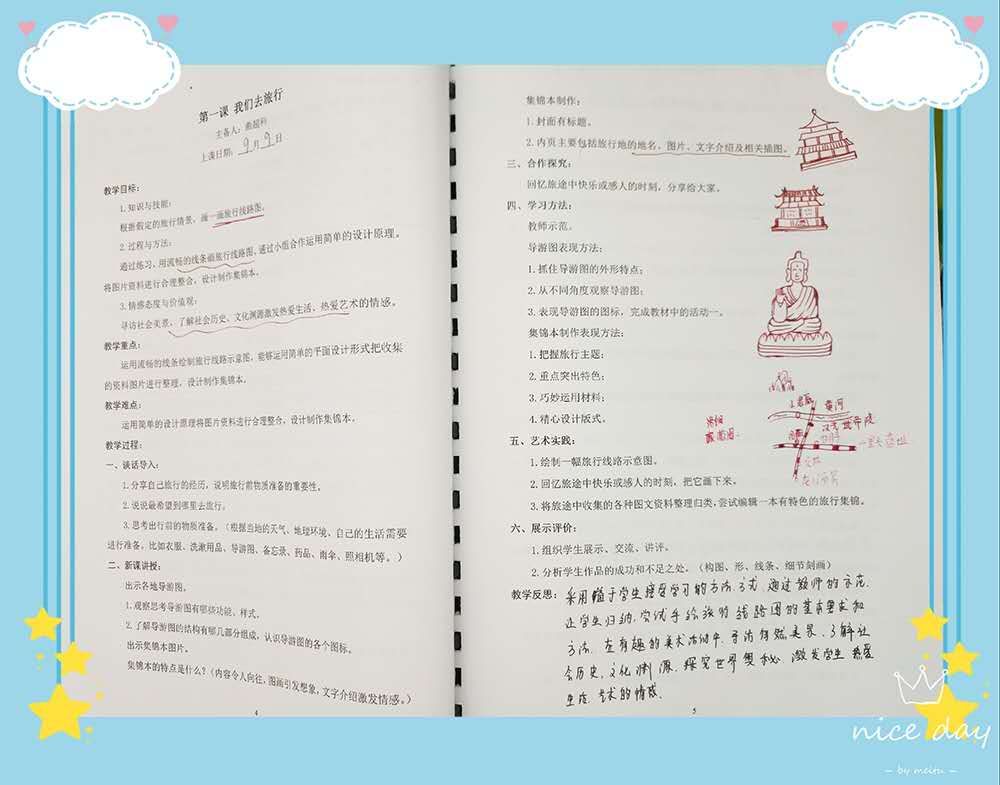 第一课 我们去旅行
主备人：
上课日期：9月9日
教学目标：
1.知识与技能：
根据假定的旅行情景，画一画旅行线路图。
2.过程与方法：
通过练习，用流畅的线条画旅行线路图，通过小组合作运用简单的设计原理。
将图片资料进行合理整合，设计制作集锦本。
3.情感态度与价值观：
寻访社会美景，了解社会历史、文化渊源激发热爱生活、热爱艺术的情感。
教学重点：
运用流畅的线条绘制旅行线路示意图，能够运用简单的平面设计形式把收集
的资料图片进行整理，设计制作集锦本。
教学难点：
运用简单的设计原理将图片资料进行合理整合，设计制作集锦本。
教学过程：
一、谈话导入：
1.分享自己旅行的经历，说明旅行前物质准备的重要性。
2.说说最希望到哪里去旅行。
3.思考出行前的物质准备。（根据当地的天气、地理环境、自己的生活需要
进行准备。比如衣服、洗漱用品、导游图、备忘录、药品、雨伞、照相机等。）
二、新课讲授：
出示各地导游图。
1.观察思考导游图有哪些功能、样式。
2.了解导游图的结构有哪几部分组成，认识导游图的各个图标。
出示集锦本图片。
集锦本的特点是什么？（内容令人向往，图画引发想象，文字介绍激发情感。）
4
集锦本制作：
1.封面有标题。
2.内页主要包括旅行地的地名、图片、文字介绍及相关插图。
三、合作探究：
回忆旅途中快乐或感人的时刻，分享给大家。
四、学习方法：
教师示范。
导游图表现方法：
1.抓住导游图的外形特点；
2.从不同角度观察导游图；
3.表现导游图的图标，完成教材中的活动一。
集锦本制作表现方法：
1.把握旅行主题；
2.重点突出特色；
3.巧妙运用材料；
4.精心设计版式。
黄河
五、艺术实践：
1.绘制一幅旅行线路示意图。
2.回忆旅途中快乐或感人的时刻，把它画下来。
3.将旅途中收集的各种图文资料整理归类，尝试编辑一本有特色的旅行集锦。
六、展示评价：
1.组织学生展示、交流、讲评。
2.分析学生作品的成功和不足之处。（构图、形、线条、细节刻画）
教学反思：采用懂于学生接受学习的方法、方式，通过教师的示范，
让学生归纳，尝试手绘旅行线路图的基本要求和
方法。在有趣的美术活动中，寻访自然美景，了解社
会历史，文化渊源，探究世界奥秘，激发学生热爱
生活、艺术的情感。
5
nice day
– by meitu –